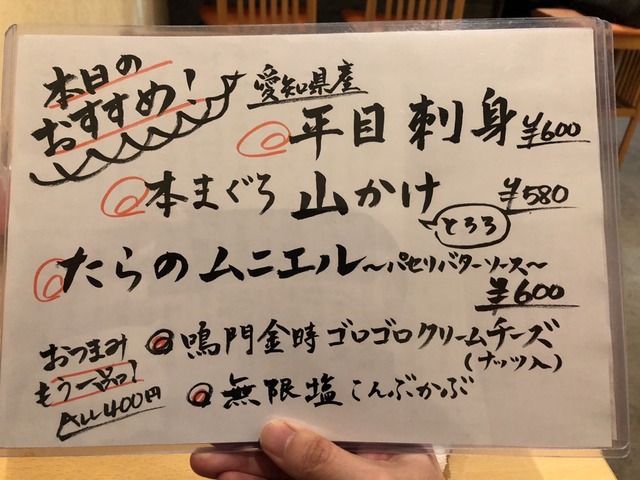 本日の
おすすめ!
愛知県産
平目刺身 ¥600
本まぐろ山かけ ¥580
とろろ
たらのムニエル～パセリバターソース～
¥600
おつまみ
もう一品!
ALL400円
鳴門金時ゴロゴロクリームチーズ
(ナッツ入)
無限塩こんぶかぶ